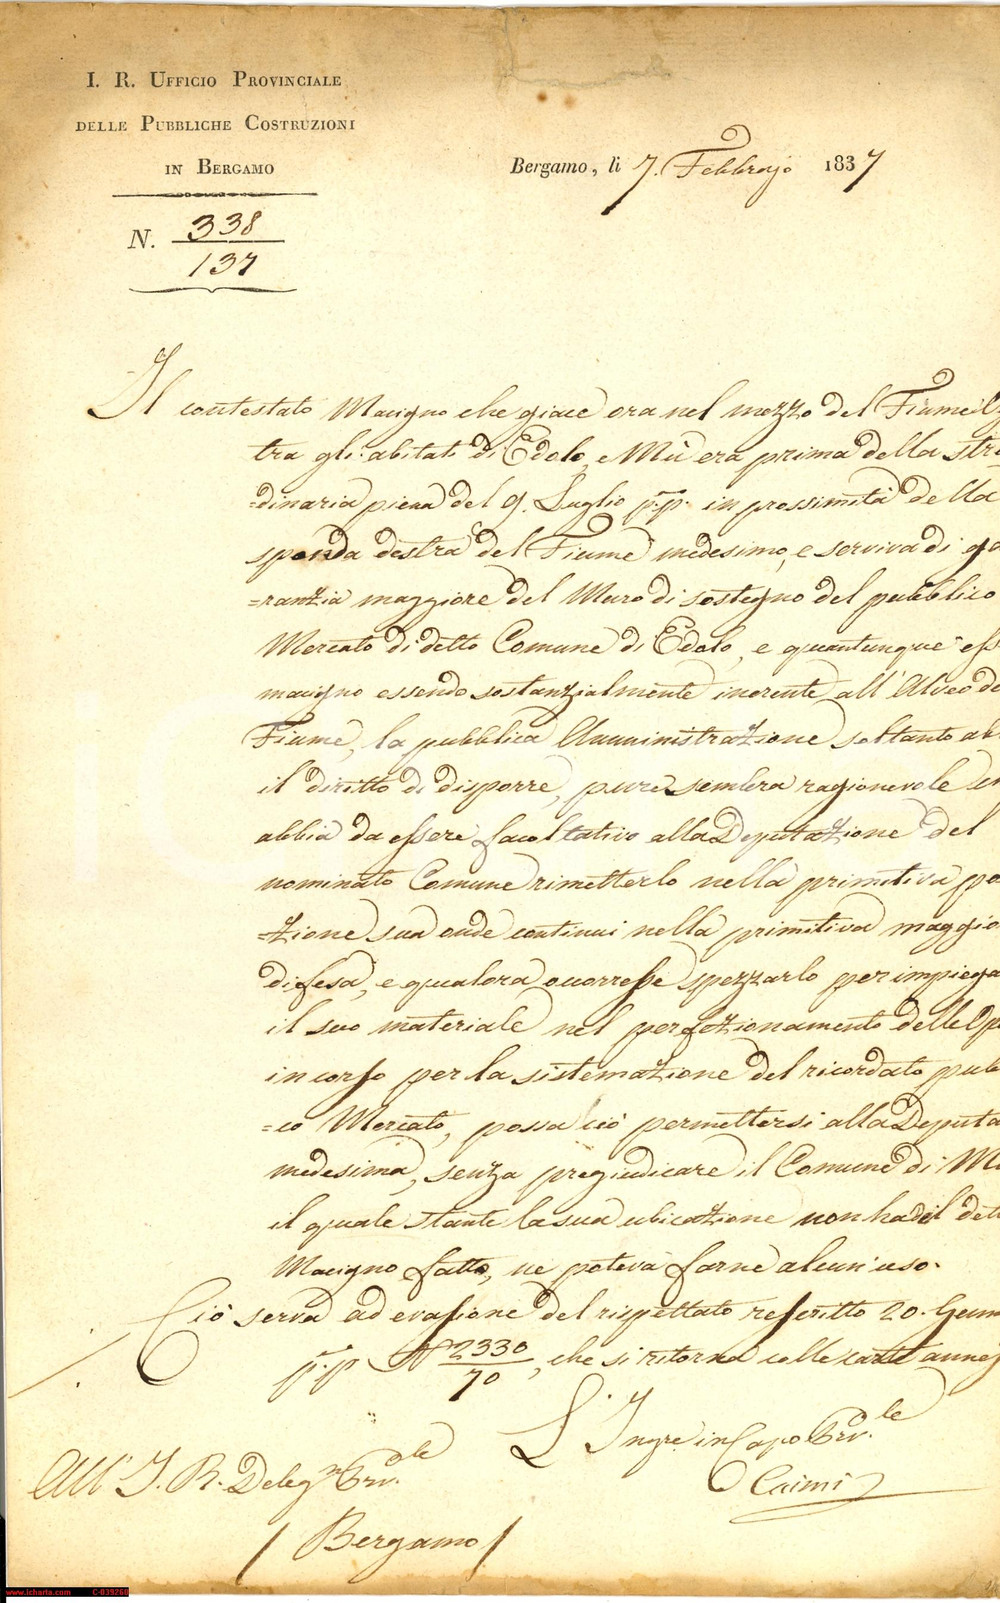 I. R. Ufficio Provinciale
delle Pubbliche Costruzioni
in Bergamo
Bergamo, li 7. Febbrajo 1837
N. 338
137
Il contestato Macigno che giace ora nel mezzo del Fiume
tra gli abitati di Edolo, e Mù era prima della stra
=dinaria piena del 9. Luglio p.p. in prossimità della
sponda destra del Fiume medesimo, e serviva di ga
=ranzia maggiore del Muro di sostegno del pubblico
Mercato di detto Comune di Edolo, e quantunque ess
macigno essendo sostanzialmente inerente all'Alveo de
Fiume, la pubblica Amministrazione soltanto ab
il diritto di disporre, pure sembra ragionevole
abbia da essere facoltativo alla Deputazione del
nominato Comune rimetterlo nella primitiva po
=zione sua onde continui nella primitiva maggio
difesa, e qualora occorresse spezzarlo per impiega
il suo materiale nel perfezionamento delle Ope
in corso per la sistemazione del ricordato pub
=co Mercato, possa ciò permettersi alla Deputa
medesima, senza pregiudicare il Comune di M
il quale stante la sua ubicazione non ha del det
Macigno fatto, ne poteva farne alcun'uso.
Ciò serva ad evasione del rispettato rescritto 20. Genn
p.p N° 2330
70, che si ritorna colle carte annes
L'Ingre in Capo Prv.le
Caimi
All' I. R. Delegne Prv.le
Bergamo
www.icharta.com C-039260